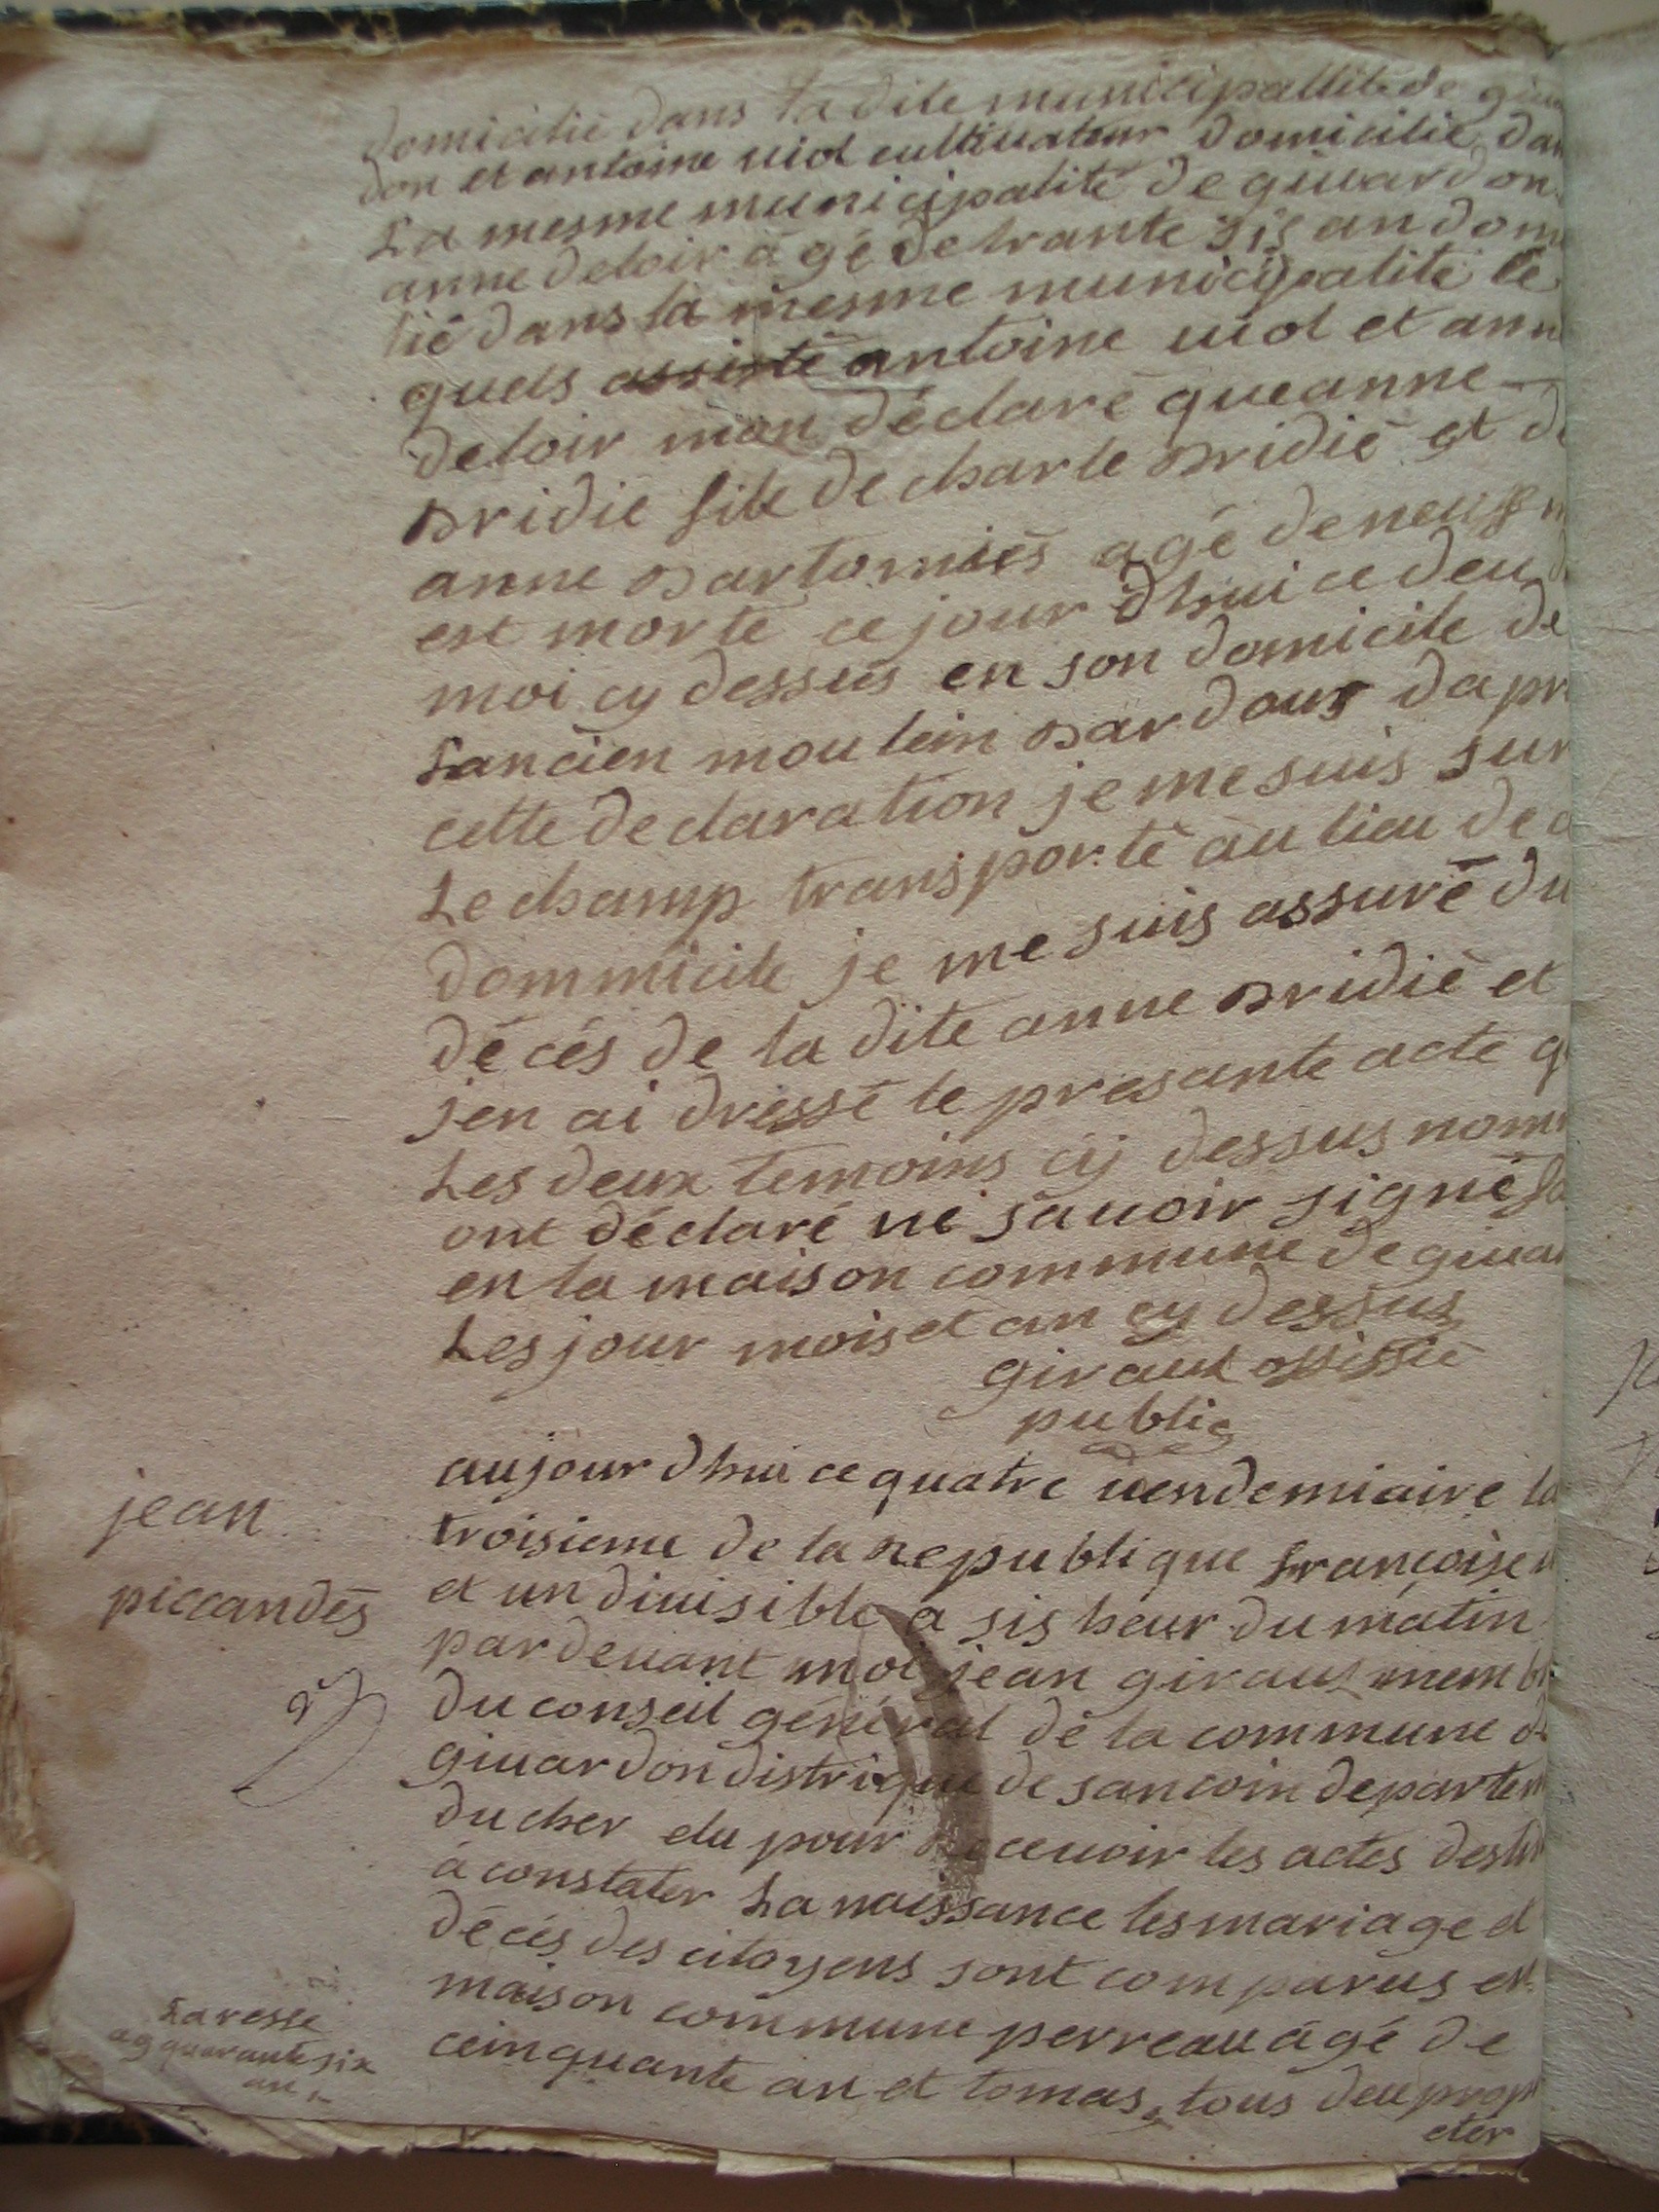 domicilié dans la dite municipallité de giu
don et antoine uiol cultiuateur domicilié dan
La mesme municipalité de giuardon
anne deloir agé de trante sis an domi
lié dans la mesme municipalité le
quels assisté antoine uiol et ann
deloir mon déclaré que anne
Bridié file de charle Bridié et d
anne Bartomiés agé de neuf m
est morte ce jour dhui ce deu d
moi cy dessus en son domicile de
Lancien moulein Bardour da pr
cette declaration je me suis sur
Le champ transporté au lieu de c
dommicile je me suis assuré du
décés de la dite anne Bridié et
jen ai dressé le presante acte q
Les deux temoins cy dessus nom
ont déclaré ne sauoir signé fa
en la maison commune de giuar
Les jour mois et an cy dessus
giraut offissié
public
aujourdhui ce quatre uendemiaire la
troisieme de la Republique françoise u
et undiuisible a sis heur du matin
par deuant moi jean giraut memb
du conseil général de la commune d
giuardon distrique de sancoin departem
du cher elu pour Receuoir les actes destin
a constater La naissance les mariage et
décés des citoyens sont comparus en
maison commune perreau agé de
ceinquante an et tomas tous deu propr
eter
jean
piccandés
Laresse
ag quarante six
an